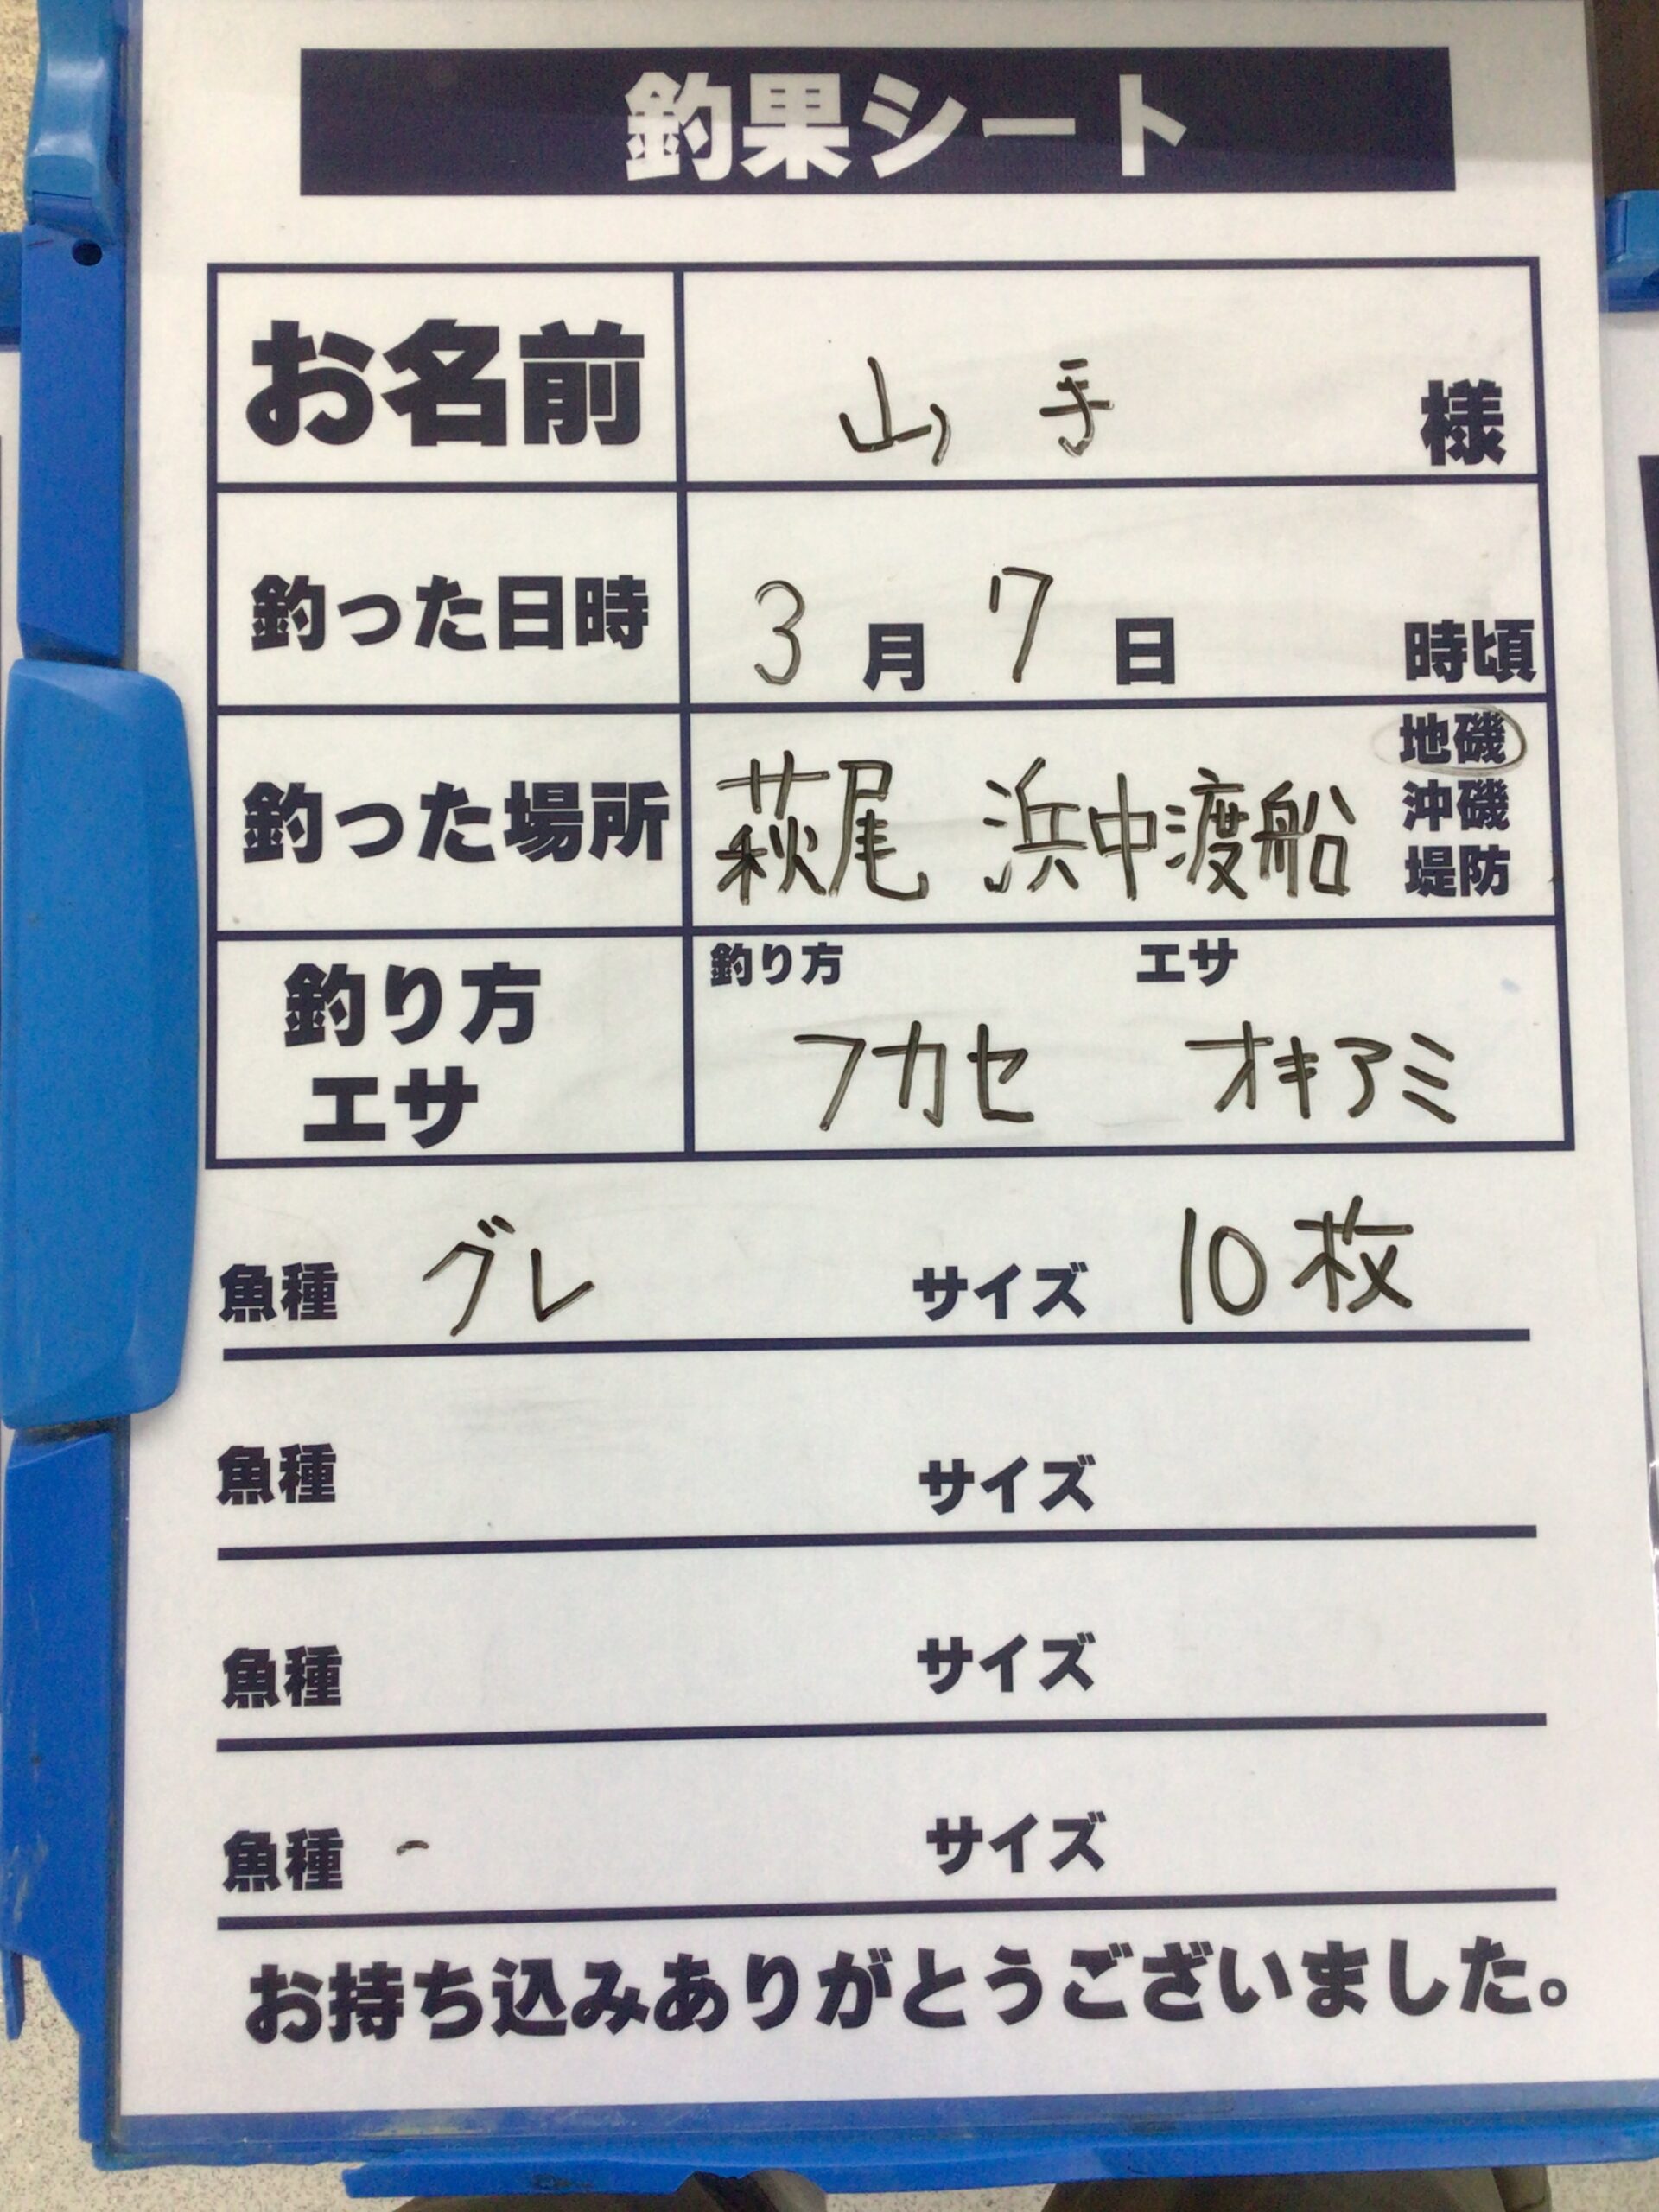 釣果シート
お名前 山手 様
釣った日時 3月7日 時頃
釣った場所 萩尾 浜中渡船 地磯
沖磯
堤防
釣り方 エサ
釣り方 フカセ オキアミ
エサ
魚種 グレ サイズ 10枚
魚種 サイズ
魚種 サイズ
魚種 サイズ
お持ち込みありがとうございました。